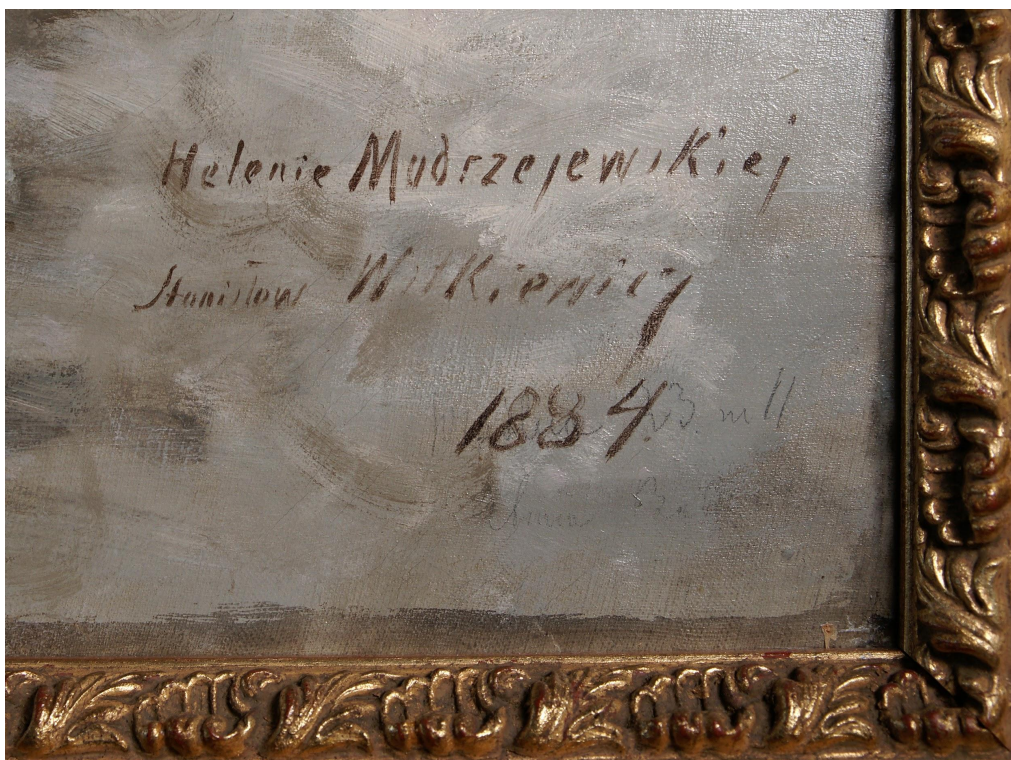 Helenie Modrzejewskiej
Stanisław Witkiewicz
1884.